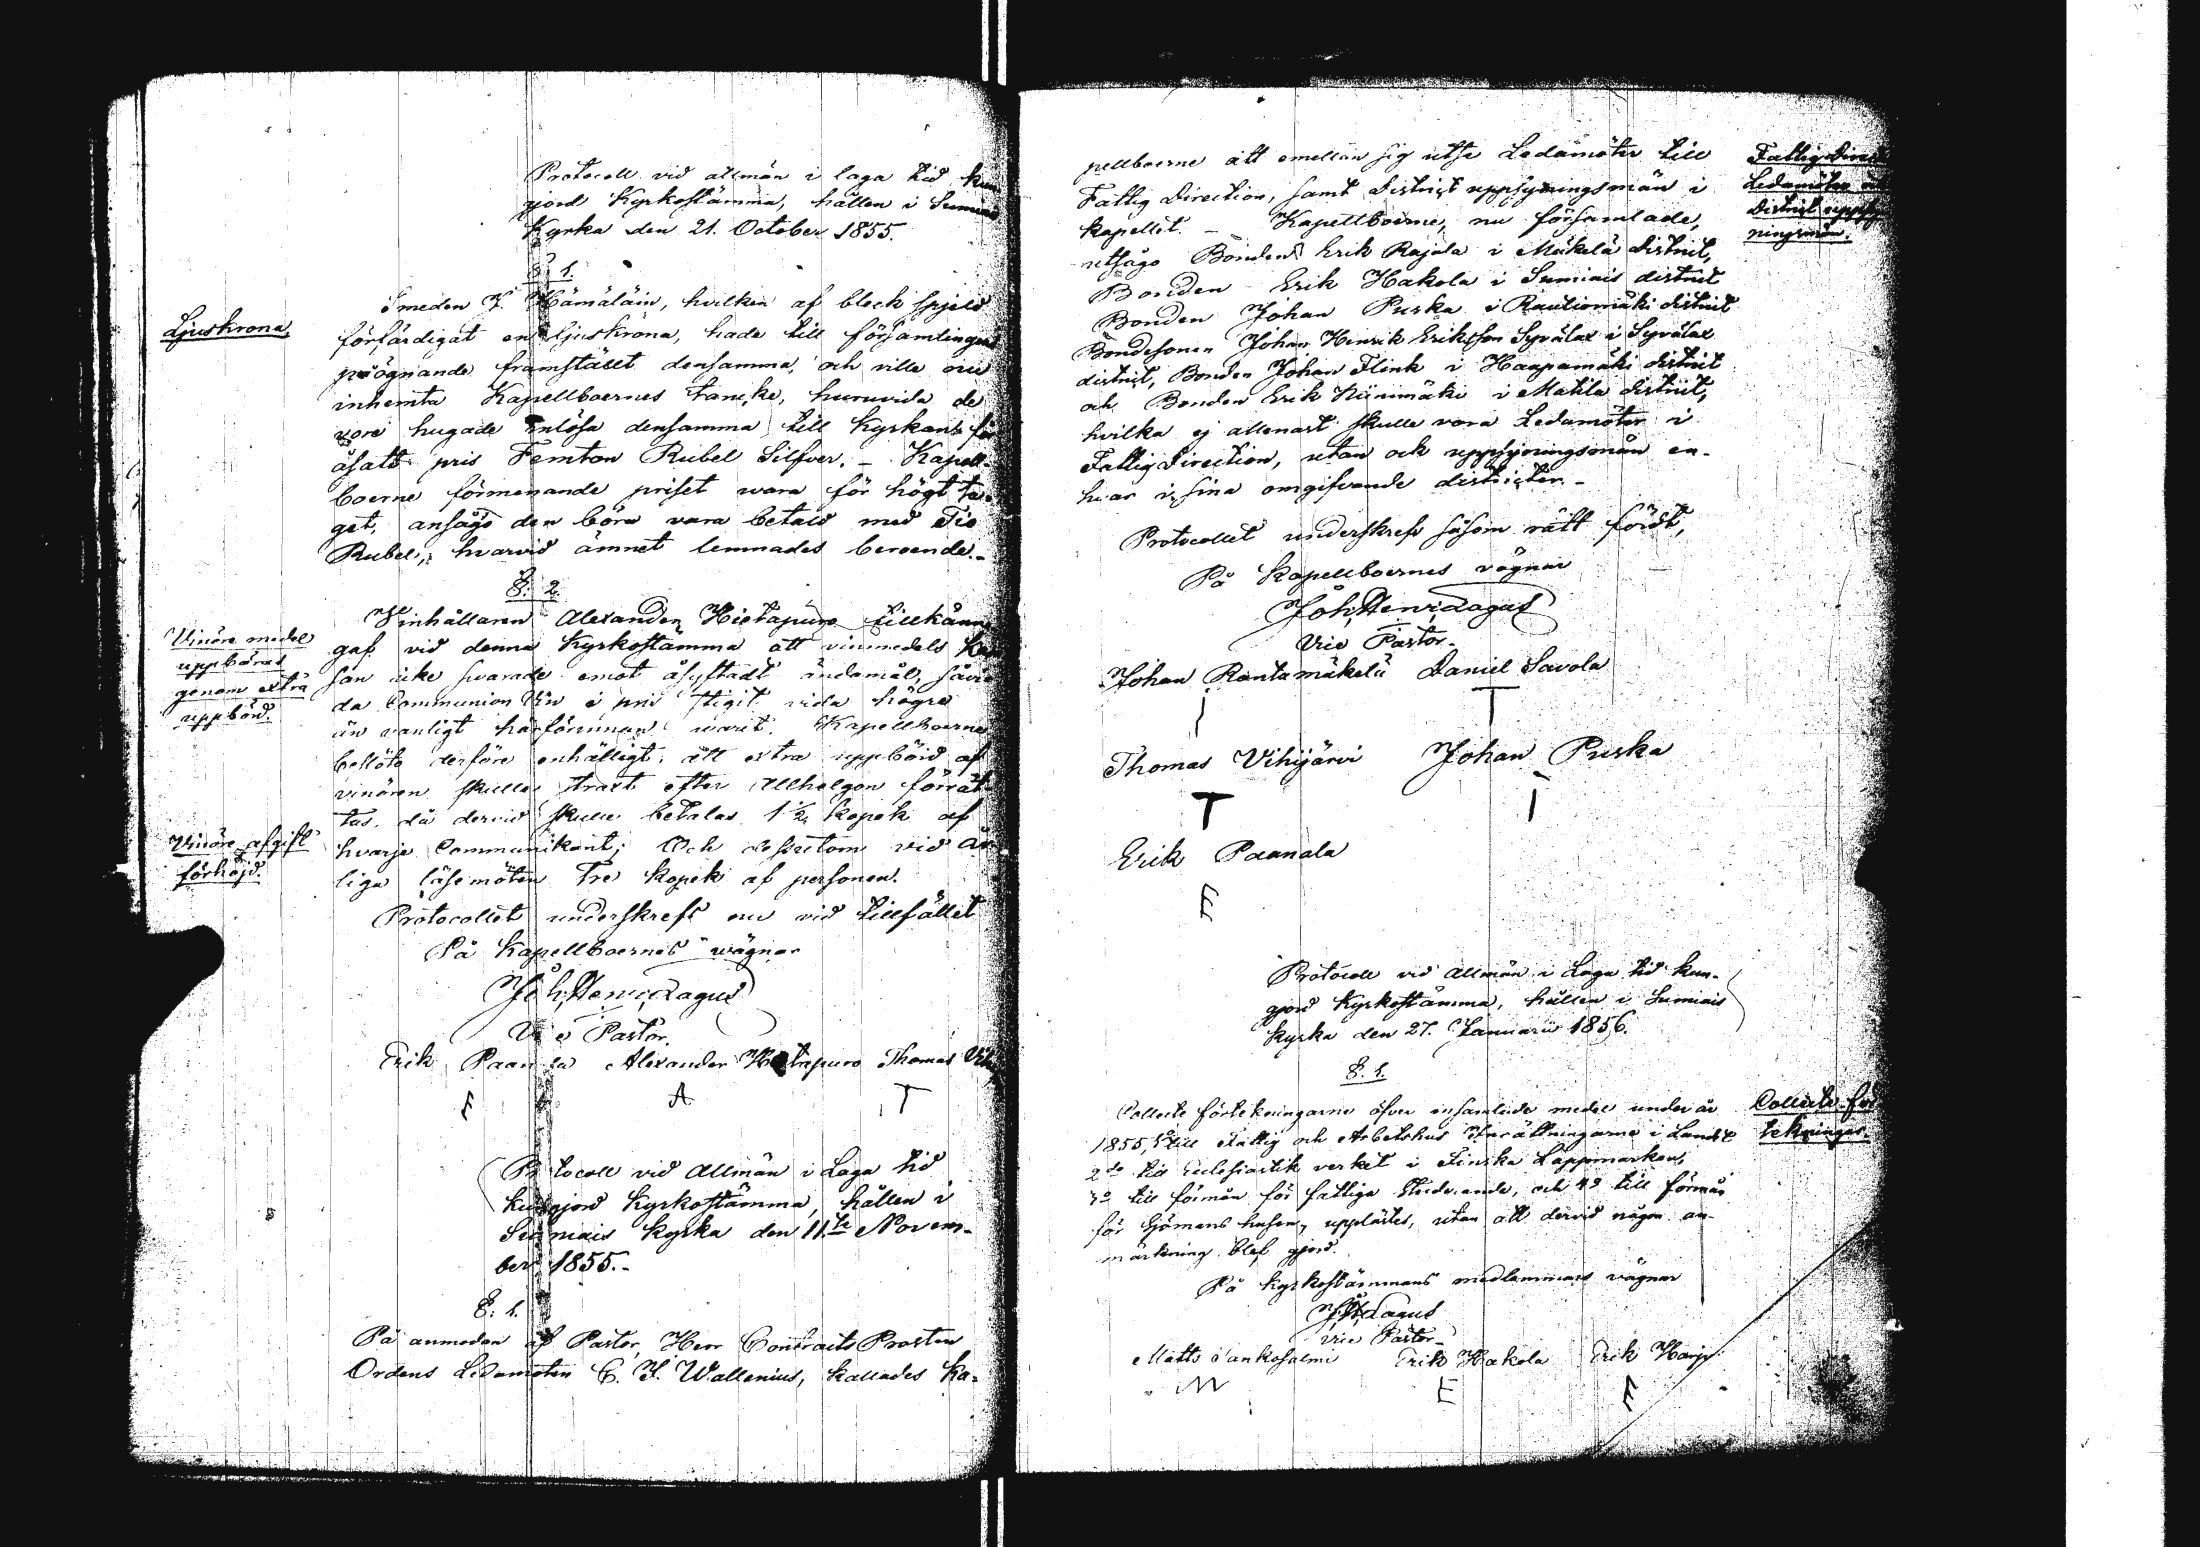 Protocoll vid allmän i laga tid kun
gjord Kyrkostämma, hållen i Sumiais
Kyrka den 21. October 1855.
§ 1.
Ljuskrona
Smeden J. Hämäläin, hvilken af bleck
förfärdigat en ljuskrona, hade till församlingens
påögnande framstäldt densamma, och ville nu
inhemta Kapellboernes tancke, huruvida de
vore hugade inlösa densamma till Kyrkans för
åsatt pris Femton Rubel Silfver. - Kapell-
boerne förmenande priset wara för högt ta-
get, ansågo den böra vara betald med Tio
Rubel, hvarvid ämnet lemnades beroende.-
§. 2.
Vinöre medel
uppbäras
genom extra
uppbörd.
Vinhållaren Alexander Hietapuro tillkänna
gaf vid denna Kyrkostämma att vinmedels Kas
san icke svarade emot åsyftadt ändamål, såvi
da Communion Vin i pris stigit vida högre
än vanligt härförinnan warit. Kapellboerne
beslöto derföre enhälligt, att extra uppbörd af
vinören skulle strart efter Allhelgon förrät
tas, då dervid skulle betalas 1 1/2 kopek af
Vinöre afgift
förhöjd.
hvarje Communikant; Och dessutom vid år
liga läsemöten Tre kopek af personen.
Protocollet underskrefs nu vid tillfället
På Kapellboernes wägnar
Joh. Henr. Lagus
Vice Pastor.
Erik Paanala Alexander Hietapuro Thomas Vihi
E A T
Protocoll vid Allmän i Laga tid
kungjord Kyrkostämma, hållen i
Sumiais Kyrka den 11te Novem-
ber 1855.-
§. 1.
På anmodan af Pastor, Herr Contracts Prosten
Ordens Ledamoten C. J. Wallenius, kallades Ka-
pellboerne att emellan sig utse Ledamöter till
Fattig Direction, samt District uppsyningsmän i
kapellet. - Kapellboerne, nu församlade,
utsågo Bonden Erik Rajala i Mäkelä district,
Bonden Erik Hakola i Sumiais district
Bonden Johan Puska i Rautiomäki district
Bondesonen Johan Henrik Eriksson Syvälax i Syvälax
district, Bonden Johan Flink i Haapamäki district
och Bonden Erik Niinimäki i Matila district,
hvilka ej allenast skulle vara Ledamöter i
Fattig Direction, utan ock uppsyningsmän en-
hvar i sina omgifvande districter.-
Fattig Direct
Ledamöter och
District uppsy
ningsmän.
Protocollet underskrefs såsom rätt fördt,
På Kapellboernes vägnar
Joh. Henr. Lagus
Vice Pastor.
Johan Rantamäkelä Daniel Savola
I T
Thomas Vihijärvi Johan Puska
T I
Erik Paanala
E
Protocoll vid Allmän i Laga tid kun-
gjord Kyrkostämma, hållen i Sumiais
Kyrka den 27. Januarii 1856.
§. 1.
Collecte förtekningarne öfver insamlade medel under år
1855, 1o till Fattig och Arbetshus Inrättningarne i Landet
2do till Ecclesiastik verket i Finska Lappmarken,
3o till förmån för fattiga Studerande, och 4o till förmån
för Sjömans husen, upplästes, utan att dervid någon an-
märkning blef gjord.
Collecte för
tekningar.
På Kyrkostämmans medlemmars vägnar
J. H. Lagus
Vice Pastor
Matts Pankosalmi Erik Hakola Erik Harju
M E E